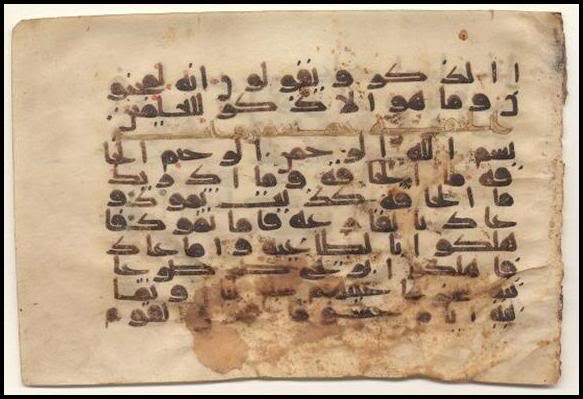 ا الذكر و يقولون انه لمجنو
ن و ما هو الا ذكر للعلمين
بسم الله الرحمن الرحيم الحا
قه ما الحاقه و ما ادريك
ما الحاقه كذبت ثمود و
عاد بالقارعه فاما ثمود فا
هلكوا بالطاغيه و اما عاد
فاهلكوا بريح صرصر عا
تيه سخرها عليهم سبع ليال و ثما
نيه ايام حسوما فترى القوم